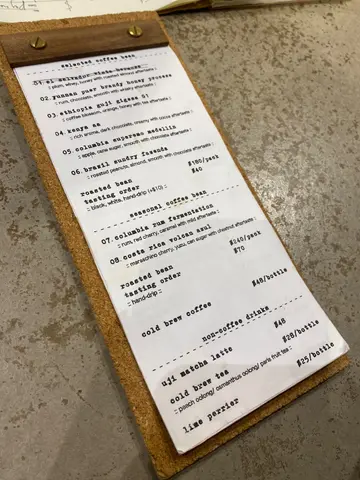 selected coffee bean
01.el salvador
:: plum, whey, honey with roasted almond aftertaste ::
02.yunnan puer brandy honey process
:: rum, chocolate, smooth with whisky aftertaste ::
03.ethiopia guji gigesa G1
:: coffee blossom, orange, honey with tea aftertaste ::
04.kenya aa
:: rich aroma, dark chocolate, creamy with cocoa aftertaste ::
05.columbia supremo medellin
:: apple, cane sugar, smooth with chocolate aftertaste ::
06.brazil sundry fazenda
:: roasted peanuts, almond, smooth with chocolate aftertaste ::
roasted bean $180/pack
tasting order $40
:: black, white, hand-drip (+$10) ::
seasonal coffee bean
07.columbia rum fermentation
:: rum, red cherry, caramel with mild aftertaste ::
08.costa rica volcan azul
:: maraschino cherry, yuzu, can sugar with chestnut aftertaste ::
roasted bean $240/pack
tasting order $70
:: hand-drip ::
cold brew coffee $48/bottle
non-coffee drinks
uji matcha latte $48
cold brew tea $28/bottle
:: peach oolong/ osmanthus oolong/ paris fruit tea ::
lime perrier $25/bottle